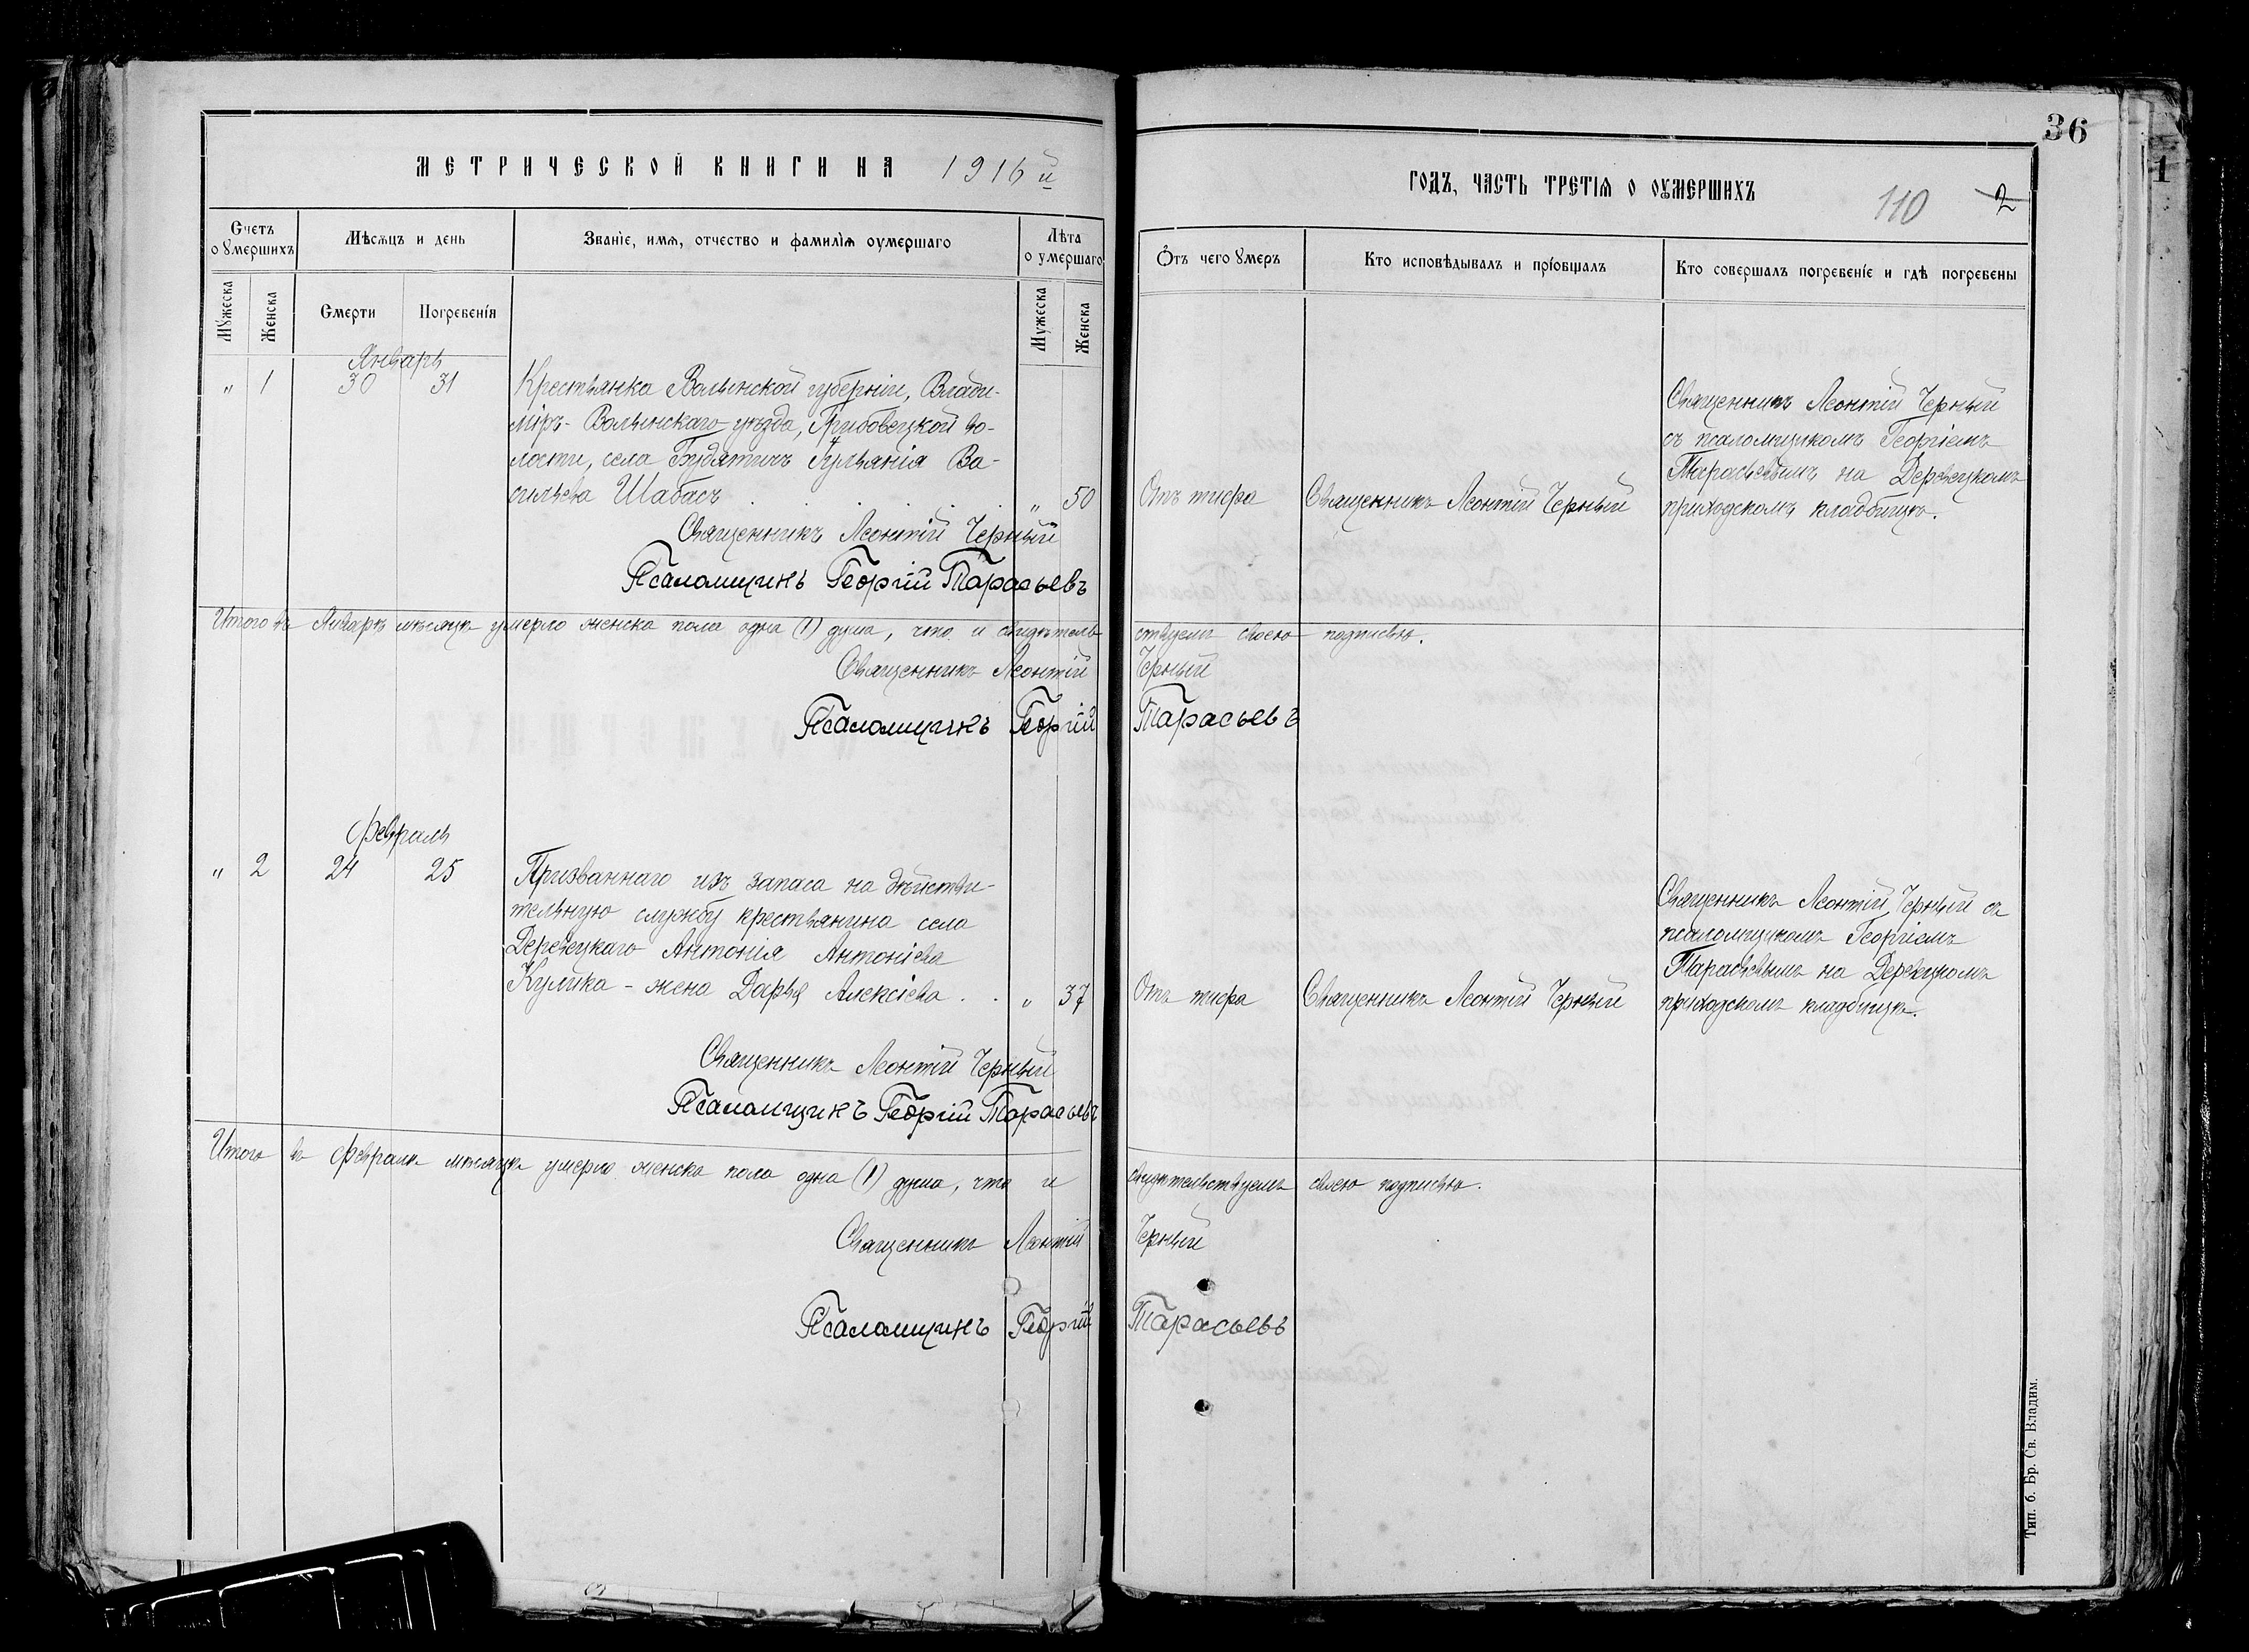 МЕТРИЧЕСКОЙ КНИГИ НА 1916й
Счетъ оумершихъ
Мѣсяцъ и день
Званіе, имя, отчество и фамилія оумершаго
Лѣта оумершаго
Мужеска
Женска
Смерти
Погребенія
Мужеска
Женска
Январь
" 1 30 31
Крестьянка Волынской губерніи, Влади-
міръ-Волынскаго уѣзда, Грибовецкой во-
лости, села Будятичъ Іульянія Ва-
сильева Шабасъ . . . . . " 50
Священникъ Леонтій Черный
Псаломщикъ Георгій Тарасьевъ
Итого въ Январѣ мѣсяцѣ умерло женска пола одна (1) душа, что и свидѣтель-
Священникъ Леонтій
Псаломщикъ Георгій
Февраль
" 2 24 25
Призваннаго изъ запаса на дѣйстви-
тельную службу крестьянина села
Деревецкаго Антонія Антоніева
Кулика - жена Дарья Алексіева . . " 37
Священникъ Леонтій Черный
Псаломщикъ Георгій Тарасьевъ
Итого въ Февралѣ мѣсяцѣ умерло женска пола одна (1) душа, что и
Священникъ Леонтій
Псаломщикъ Георгій
36
1
ГОДЪ, ЧАСТЬ ТРЕТІЯ О ОУМЕРШИХЪ
110 2
Отъ чего умеръ
Кто исповѣдывалъ и пріобщалъ
Кто совершалъ погребеніе и гдѣ погребены
Отъ тифа
Священникъ Леонтій Черный
Священникъ Леонтій Черный
съ псаломщикомъ Георгіемъ
Тарасьевымъ на Деревецкомъ
приходскомъ кладбищѣ.
ствуемъ своею подписью.
Черный
Тарасьевъ
Отъ тифа
Священникъ Леонтій Черный
Священникъ Леонтій Черный съ
псаломщикомъ Георгіемъ
Тарасьевымъ на Деревецкомъ
приходскомъ кладбищѣ.
свидѣтельствуемъ своею подписью.
Черный
Тарасьевъ
Тип. б. Бр. Св. Владим.